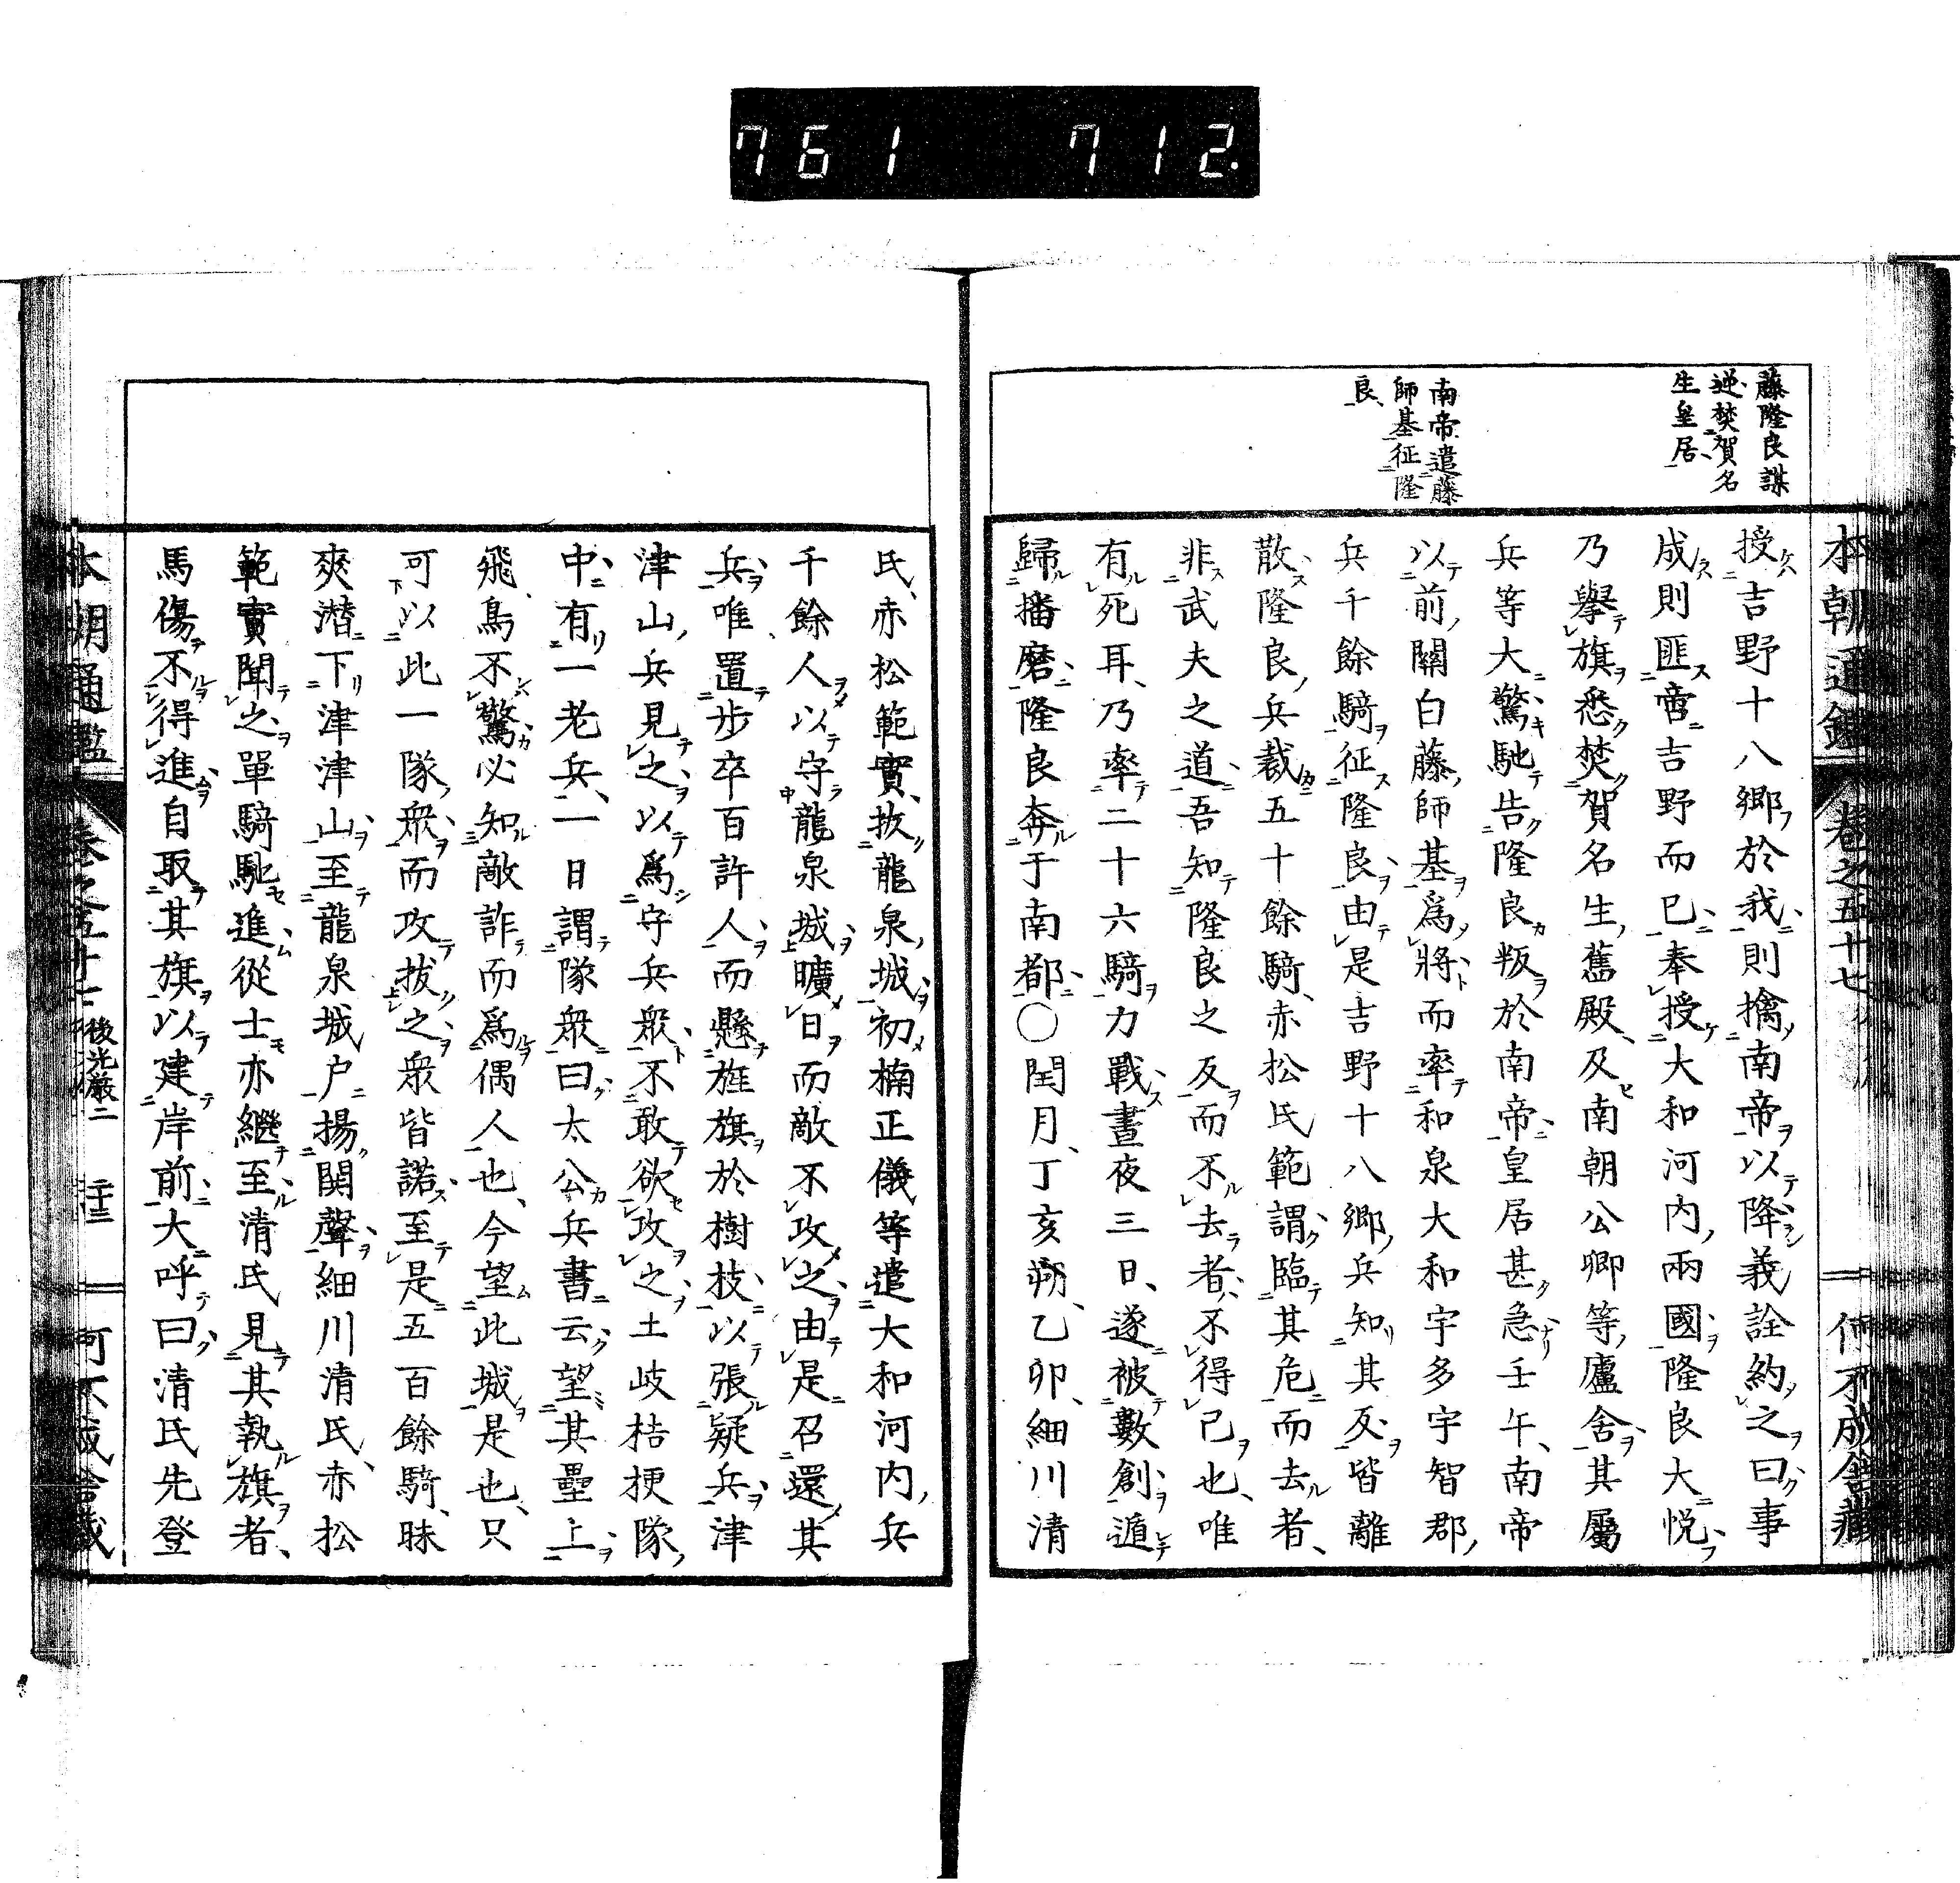 761 712.
本朝通鑑 卷之五十七
藤隆良謀
逆焚賀名
生皇居
南帝遣藤
師基征隆
良
授吉野十八鄉於我則擒南帝以降義詮約之曰事
成則匪啻吉野而已奉授大和河内兩國隆良大悦
乃擧旗悉焚賀名生舊殿及南朝公卿等廬舍其屬
兵等大驚馳告隆良叛於南帝皇居甚急壬午南帝
以前關白藤師基爲將而率和泉大和宇多宇智郡
兵千餘騎征隆良由是吉野十八鄉兵知其反皆離
散隆良兵裁五十餘騎赤松氏範謂臨其危而去者
非武夫之道吾知隆良之反而不去者不得已也唯
有死耳乃率二十六騎力戰晝夜三日遂被數創遁
歸播磨隆良奔于南都〇閏月丁亥朔乙卯細川清
氏赤松範實拔龍泉城初楠正儀等遣大和河内兵
千餘人以守龍泉城曠日而敵不攻之由是召還其
兵唯置步卒百許人而懸旌旗於樹枝以張疑兵津
津山兵見之以爲守兵衆不敢欲攻之土岐桔梗隊
中有一老兵一日謂隊衆曰太公兵書云望其壘上
飛鳥不驚必知敵詐而爲偶人也今望此城是也只
可以此一隊衆而攻拔之衆皆諾至是五百餘騎昧
爽潜下津津山至龍泉城戸揚鬨聲細川清氏赤松
範實聞之單騎馳進從士亦繼至清氏見其執旗者
馬傷不得進自取其旗以建岸前大呼曰清氏先登
本朝通鑑 卷之五十七 後光嚴二 三十三